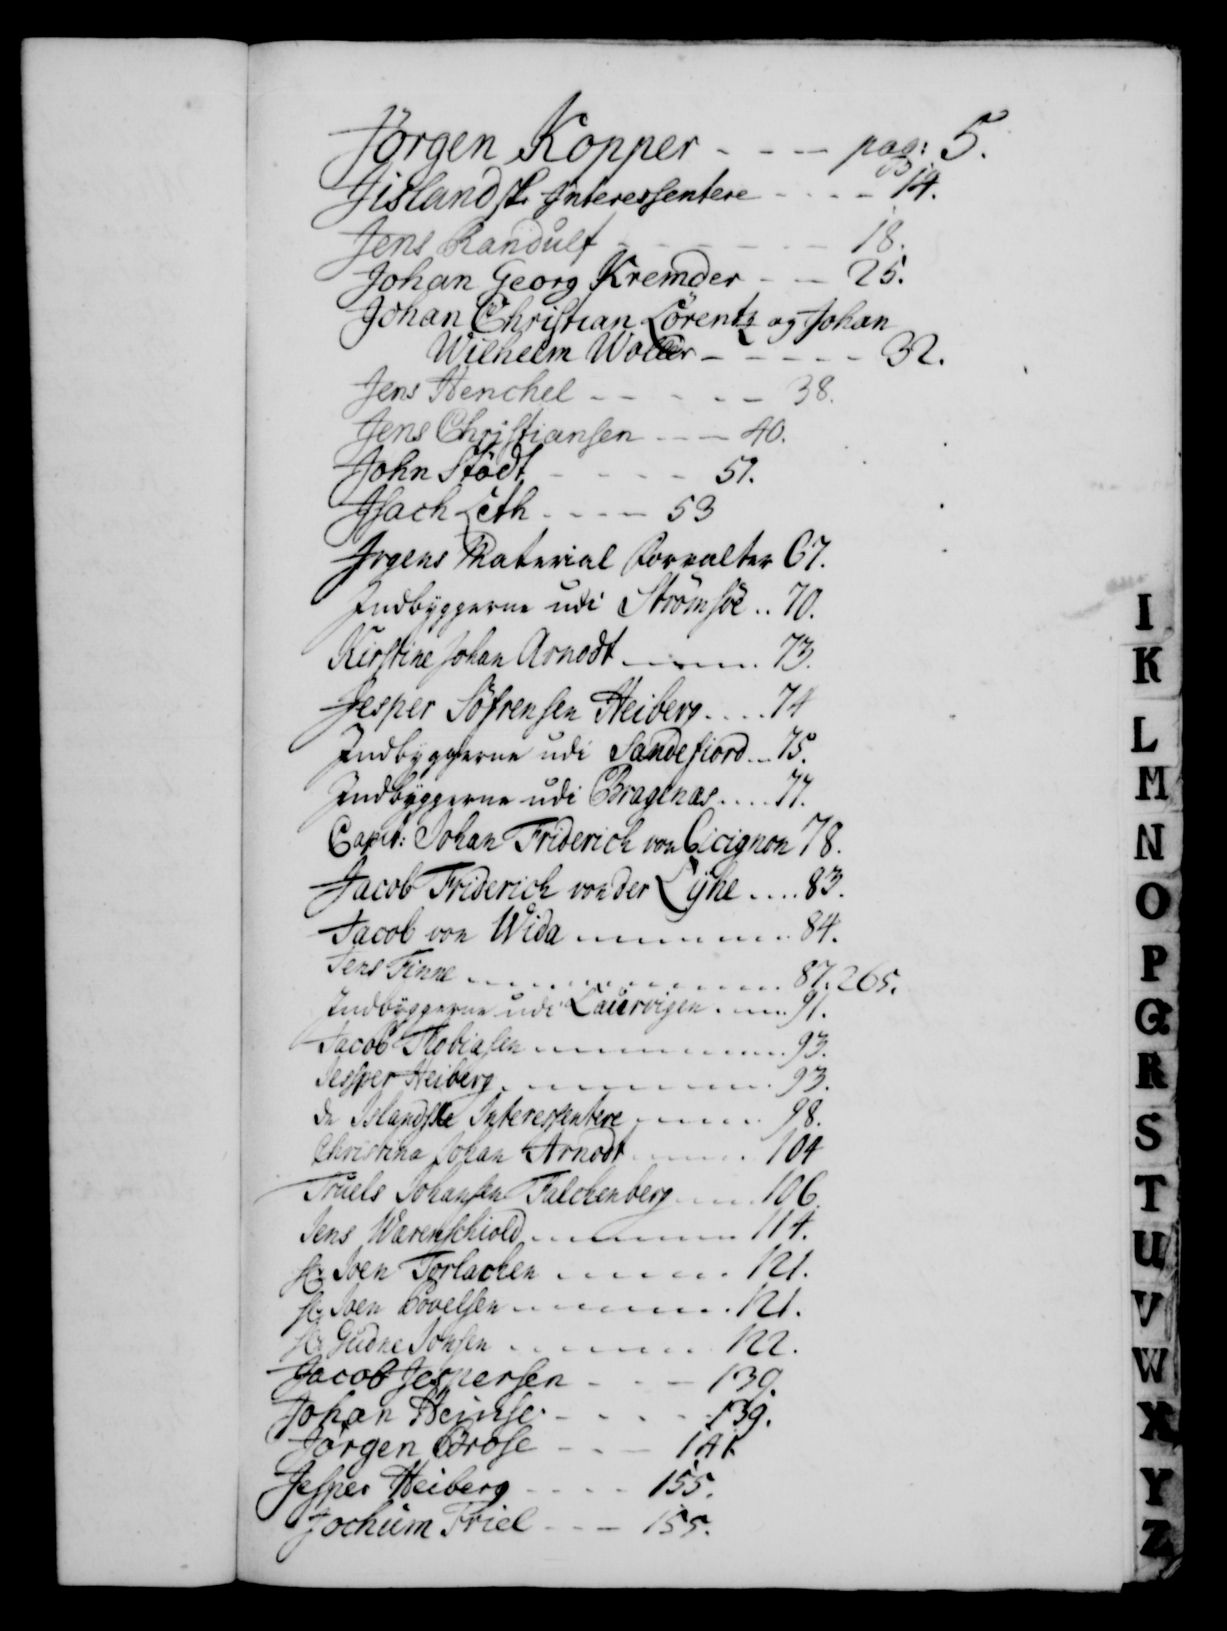 Jörgen Kopper - - - - pag: 5.
Jislandsk. Interessentere - - - - 14.
Jens Randulf - - - - - - 18.
Johan Georg Kremder - - - 25.
Johan Christian Lörentz og Johan
Wilhelm Woller - - - - - - 32.
Jens Henchel - - - - - 38.
Jens Christiansen - - - 40.
John Stödt - - - - - 51.
Isach Leth - - - - 53
Irgens Material Forvalter 67.
Indbyggerne udi Strömsöe .. 70.
Kirstine Johan Arnodt - - - - 73.
Jesper Söfrensen Heiberg .... 74
Indbyggerne udi Sandefiord ... 75.
Indbyggerne udi Bragenæs .... 77.
Capit: Johan Friderich von Cicignon 78.
Jacob Friderich von der Lyhe .... 83.
Jacob von Wida - - - - - - 84.
Jens Finne - - - - - - - - 87. 265.
Indbyggerne udi Laurvigen - - - 91.
Jacob Thobiasen - - - - - - - 93.
Jesper Heiberg - - - - - - - 93.
De Islandske Interessentere - - - - 98.
Christina Johan Arnodt - - - - 104
Truels Johansen Falchenberg - - - 106.
Jens Warenschiold - - - - - - 114.
Hr Joen Torlacken - - - - - 121.
Hr Joen Povelsen - - - - - - 121.
Hr Gudne Jonsen - - - - - - 122.
Jacob Jespersen - - - - 139.
Johan Heinse - - - - - 139.
Jörgen Brose - - - - 141
Jesper Heiberg - - - - 155.
Jochum Friel - - - 155.
I
K
L
M
N
O
P
Q
R
S
T
U
V
W
X
Y
Z